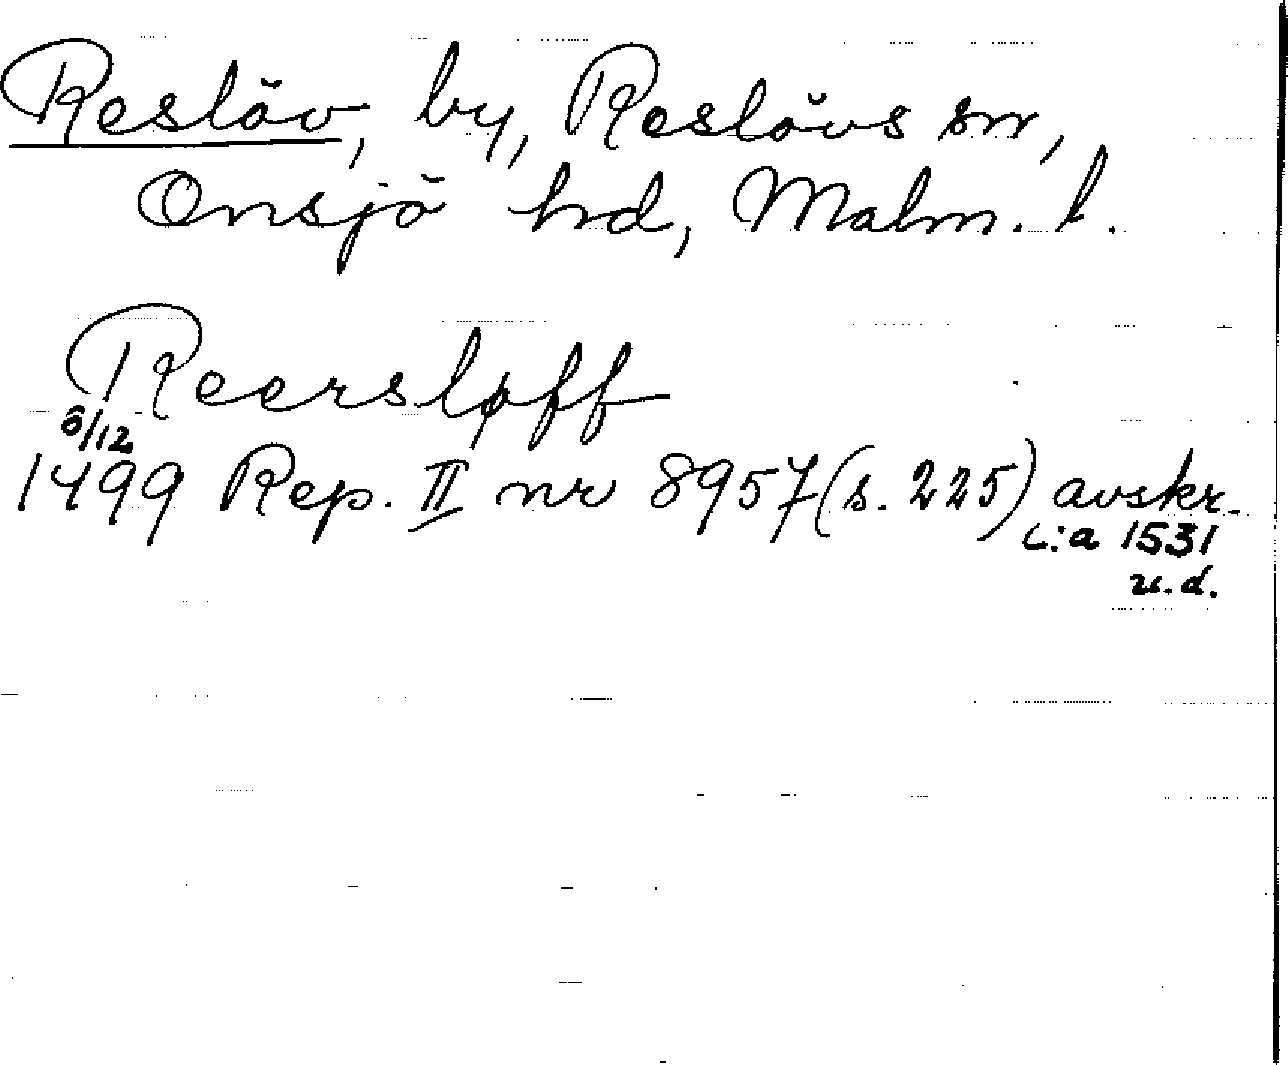 Reslöv, by, Reslövs sn,
Onsjö hd, Malm. l.
Reersløff
6/12
1499 Rep. II nr 8957 (s. 225) avskr.
c:a 1531
u.d.